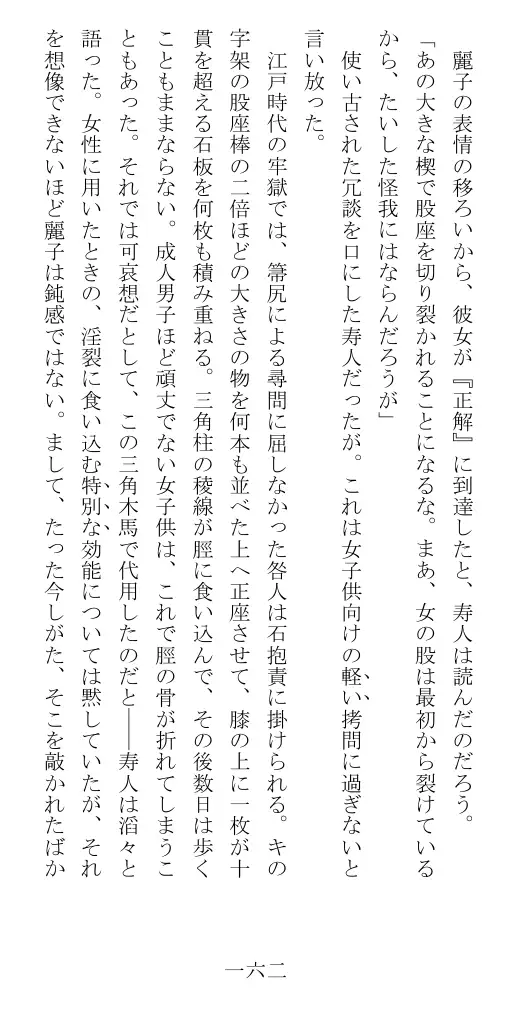 麗子の表情の移ろいから、彼女が『正解』に到達したと、寿人は読んだのだろう。
「あの大きな楔で股座を切り裂かれることになるな。まあ、女の股は最初から裂けている
から、たいした怪我にはならんだろうが」
使い古された冗談を口にした寿人だったが。これは女子供向けの軽い拷問に過ぎないと
言い放った。
江戸時代の牢獄では、箒尻による尋問に屈しなかった咎人は石抱責に掛けられる。キの
字架の股座棒の二倍ほどの大きさの物を何本も並べた上へ正座させて、膝の上に一枚が十
貫を超える石板を何枚も積み重ねる。三角柱の稜線が脛に食い込んで、その後数日は歩く
こともままならない。成人男子ほど頑丈でない女子供は、これで脛の骨が折れてしまうこ
ともあった。それでは可哀想だとして、この三角木馬で代用したのだと――寿人は滔々と
語った。女性に用いたときの、淫裂に食い込む特別な効能については黙していたが、それ
を想像できないほど麗子は鈍感ではない。まして、たった今しがた、そこを敲かれたばか
一六二